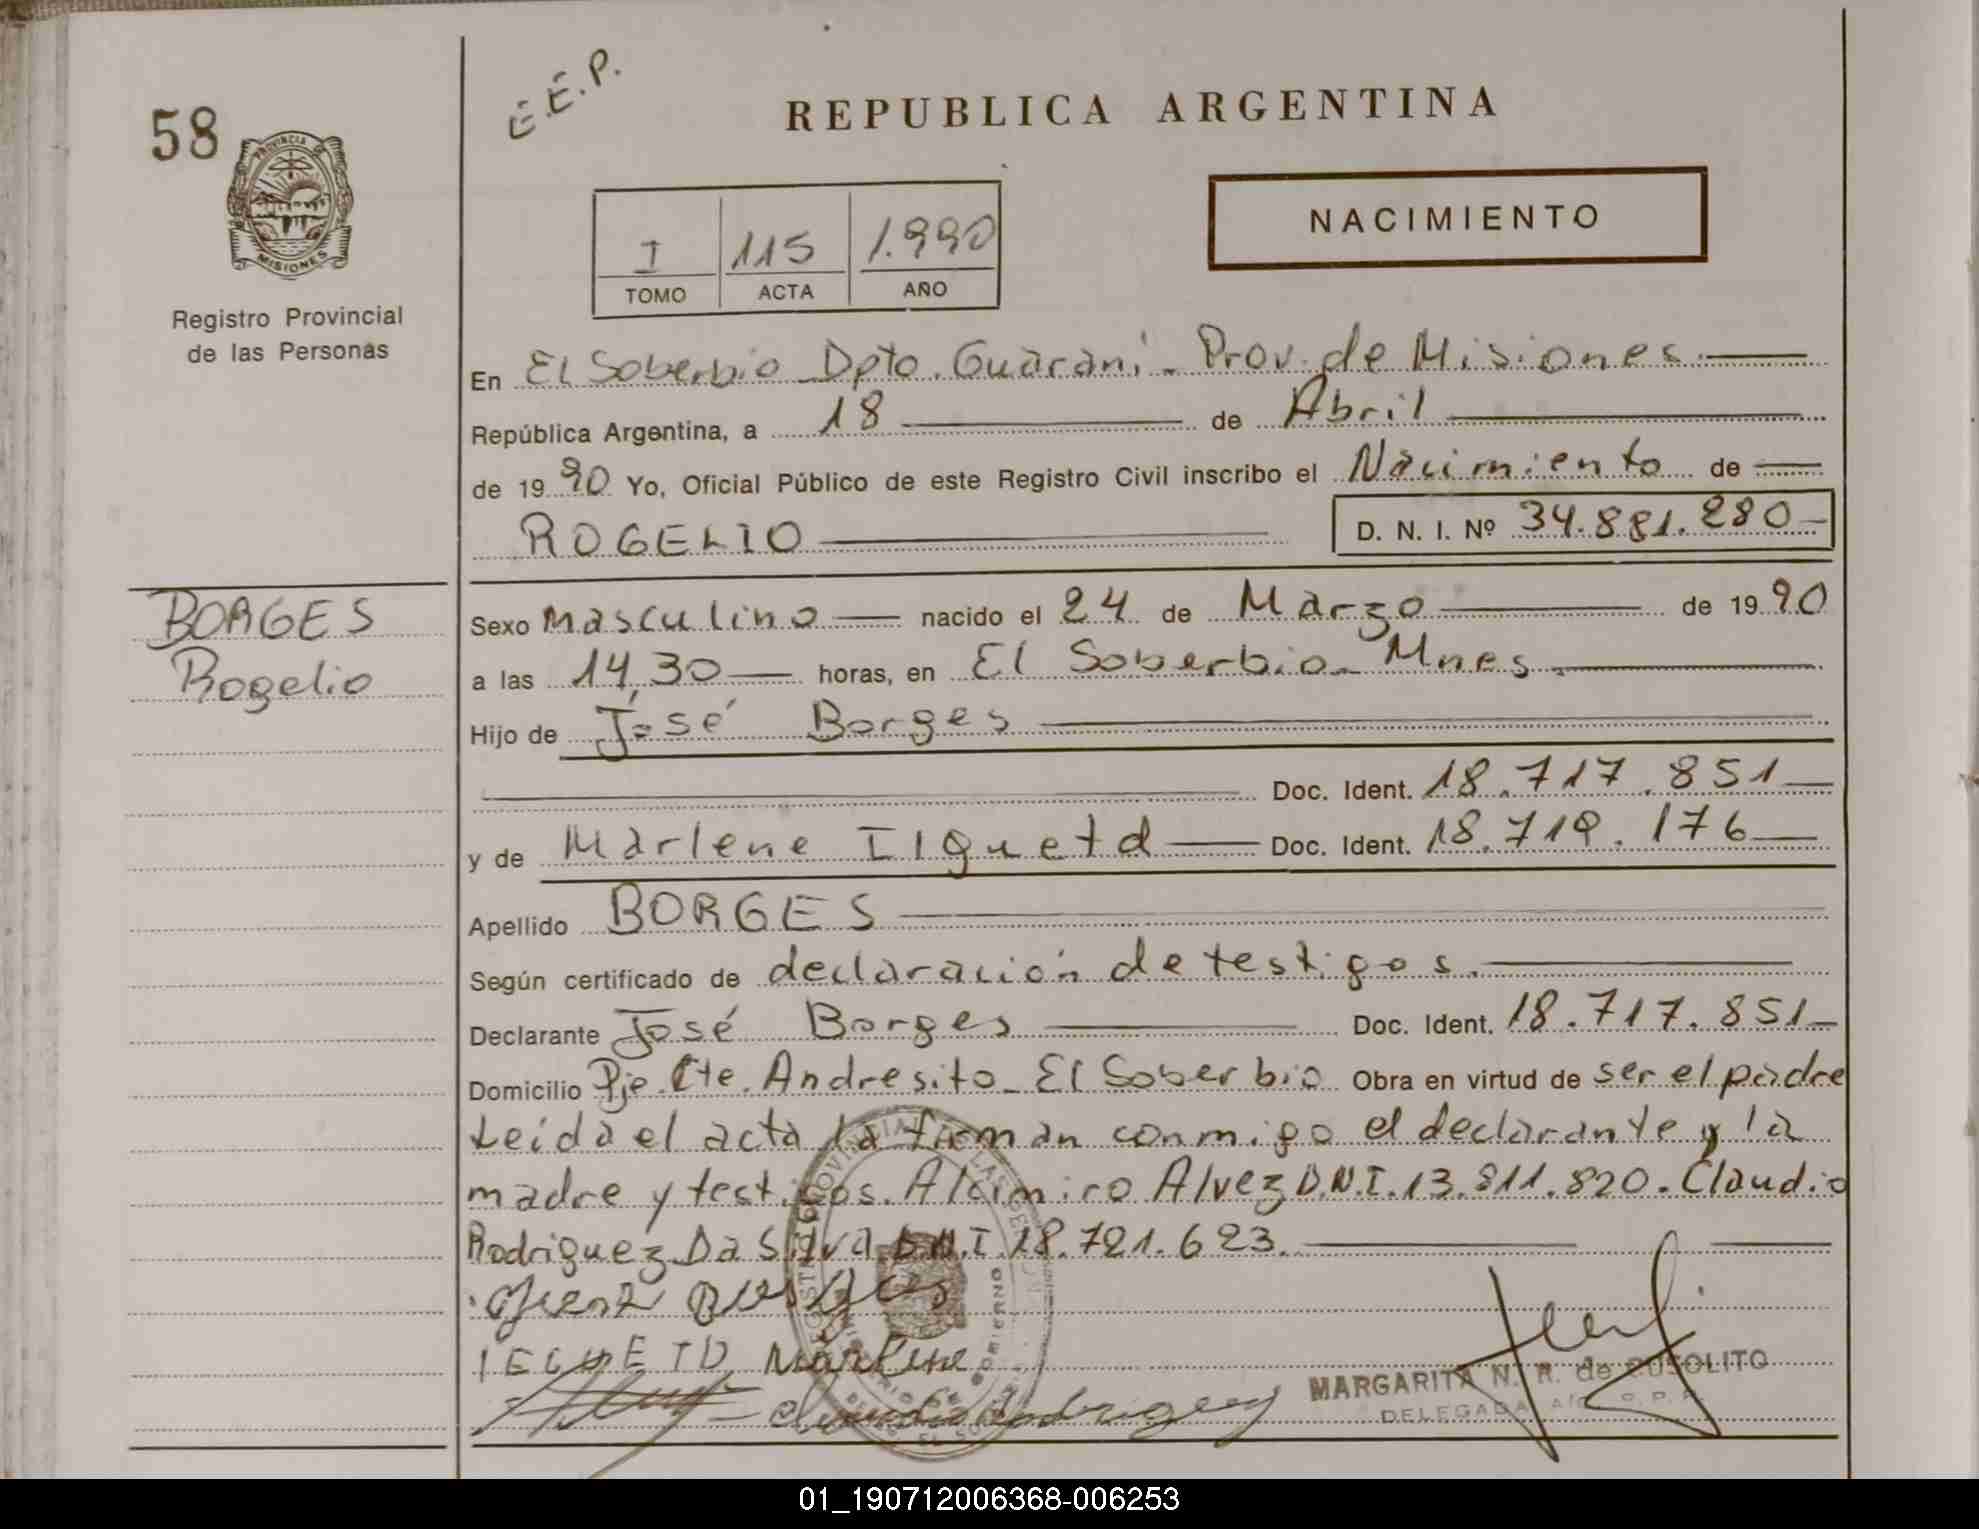 58
E.E.P.
REPUBLICA ARGENTINA
PROVINCIA DE
MISIONES
Registro Provincial
de las Personas
I 115 1.990
TOMO ACTA AÑO
NACIMIENTO
En El Soberbio Dpto. Guaraní - Prov. de Misiones.
República Argentina, a 18 de Abril
de 1990 Yo, Oficial Público de este Registro Civil inscribo el Nacimiento de
ROGELIO D. N. I. Nº 34.881.280
BORGES
Rogelio
Sexo masculino nacido el 24 de Marzo de 1990
a las 14,30 horas, en El Soberbio - Mnes.
Hijo de José Borges
Doc. Ident. 18.717.851
y de Marlene Ilguetd Doc. Ident. 18.719.176
Apellido BORGES
Según certificado de declaración de testigos.
Declarante José Borges Doc. Ident. 18.717.851
Domicilio Pje. Cte. Andresito - El Soberbio Obra en virtud de ser el padre
Leída el acta la firman conmigo el declarante y la
madre y testigos. Alcimiro Alvez D.N.I. 13.811.820. Claudio
Rodriguez Da Silva D.N.I. 18.721.623.
Marlene
Claudio Rodriguez
MARGARITA N. R. de CUSOLITO
DELEGADA
01_190712006368-006253